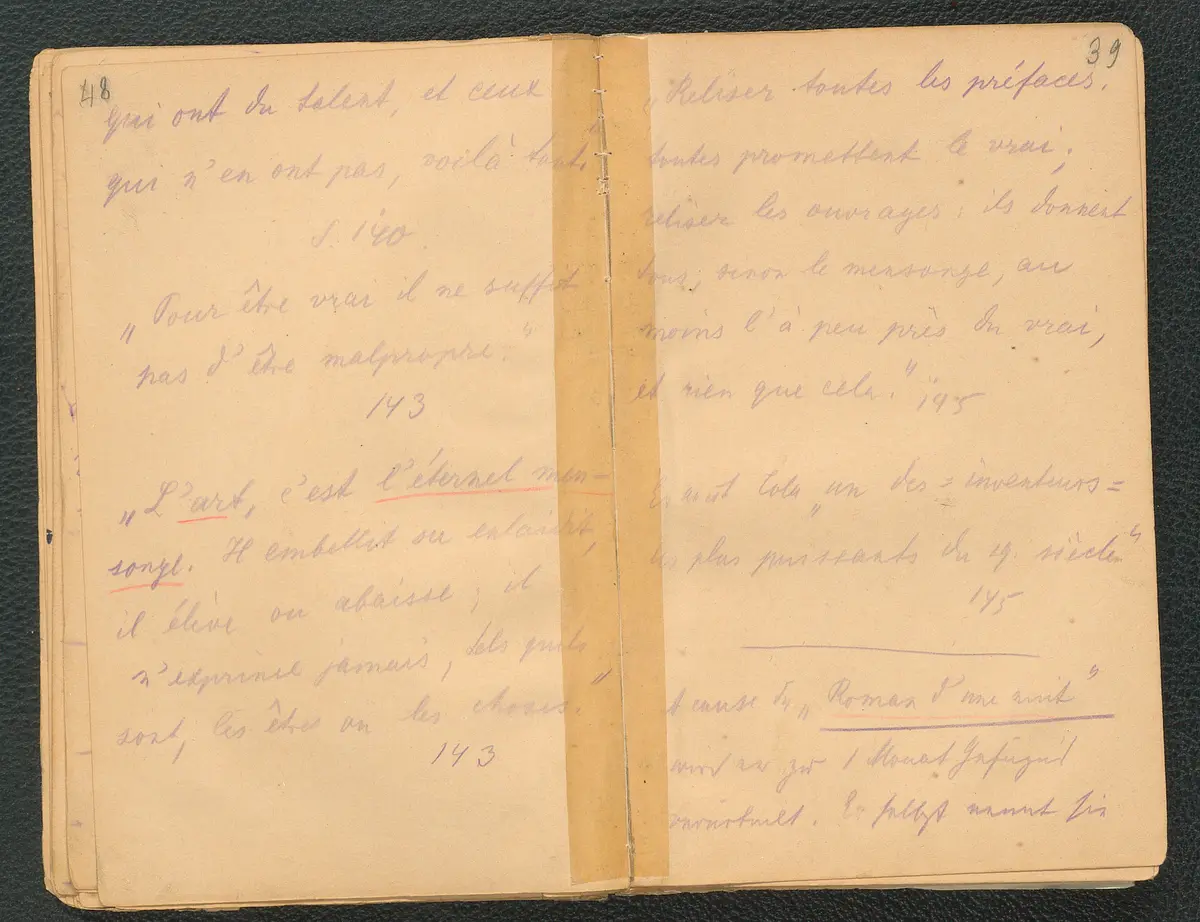 48
qui ont du talent, et ceux
qui n'en ont pas, voilà tout."
S. 140
„Pour être vrai il ne suffit
pas d'être malpropre."
143
„L'art, c'est l'éternel men-
songe. Il embellit ou enlaidit,
il élève ou abaisse; il
n'exprime jamais, tels qu'ils
sont, les êtres ou les choses."
143
39
„Relisez toutes les préfaces,
toutes promettent le vrai;
relisez les ouvrages: ils donnent
tous, sinon le mensonge, au
moins l'à peu près du vrai,
et rien que cela." 145
Er nennt Zola „un des inventeurs
les plus puissants du 19. siècle"
145
A cause du „Roman d'une nuit"
wird er zu 1 Monat Gefängniß
verurtheilt. Er selbst nennt sie